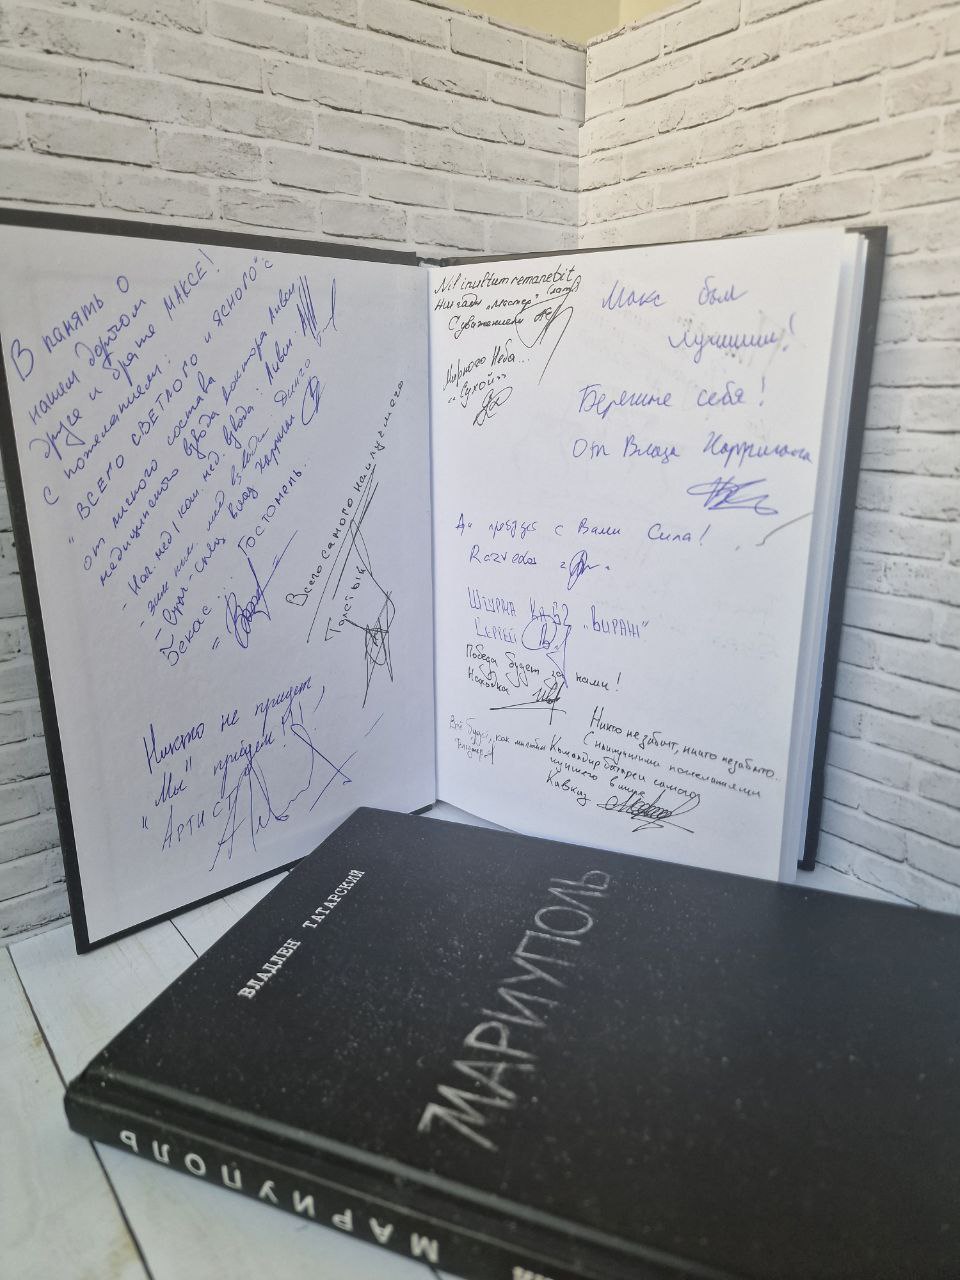 В память о
нашем дорогом
друге и брате МАКСЕ!
С пожеланием:
"ВСЕГО СВЕТЛОГО и ЯСНОГО" с
от личного состава
медицинского взвода доктора Ливси
- Нач. мед/ком. мед. взвода: Ливси
мед взвода Динго
Влад Харриган
Бекас... Гостомель.
Всего самого наилучшего
Толстый
Никто не придет
"Мы" придём!!!
"АРТИСТ"
Nil inultum remanebit
"Мастер"
С уважением
Мирного Неба...
"Сухой"
Макс был
лучшим!
Берегите себя!
От Влада Харригана
Да пребудет с Вами Сила!
Razvedos
Штурман Ка-52 "ВИРАЖ"
СЕРГЕЙ
Победа будет за нами!
Находка
Всё будет, как мы любим
Никто не забыт, ничто не забыто...
С наилучшими пожеланиями
Командир батареи самого
лучшего в мире
Кавказ
ВЛАДЛЕН ТАТАРСКИЙ
МАРИУПОЛЬ
МАРИУПОЛЬ